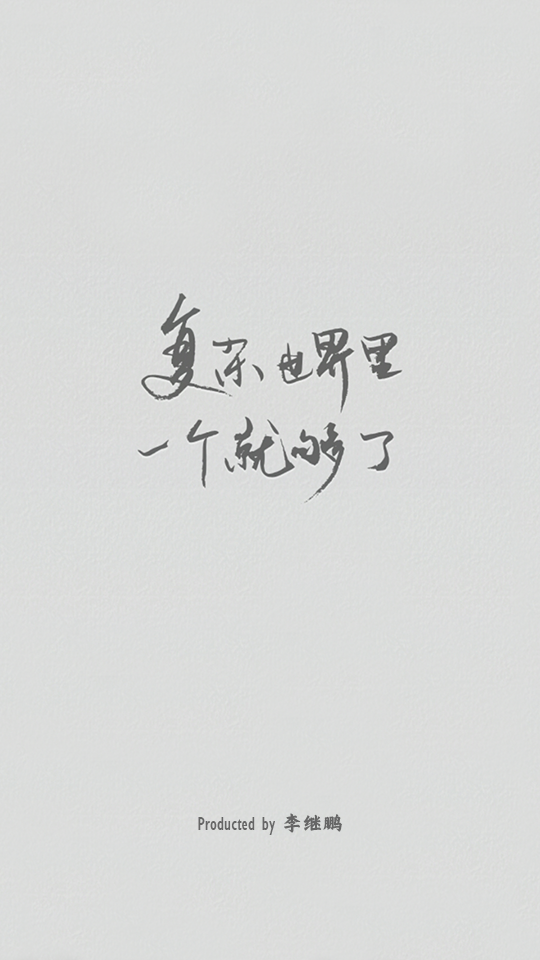 复杂世界里
一个就够了
Producted by 李继鹏